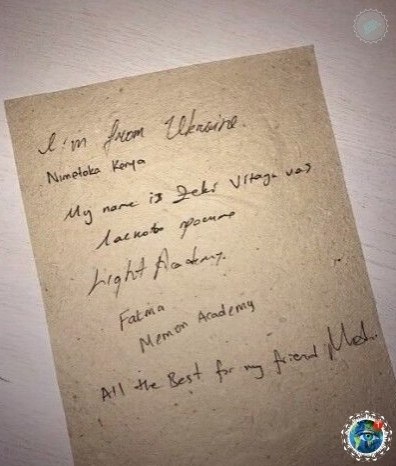 I'm from Ukraine.
Nimetoka Kenya
My name is Zeki Vitayu vas
Ласкаво просимо
Light Academy.
Fatma
Memon Academy
All the Best for my friend